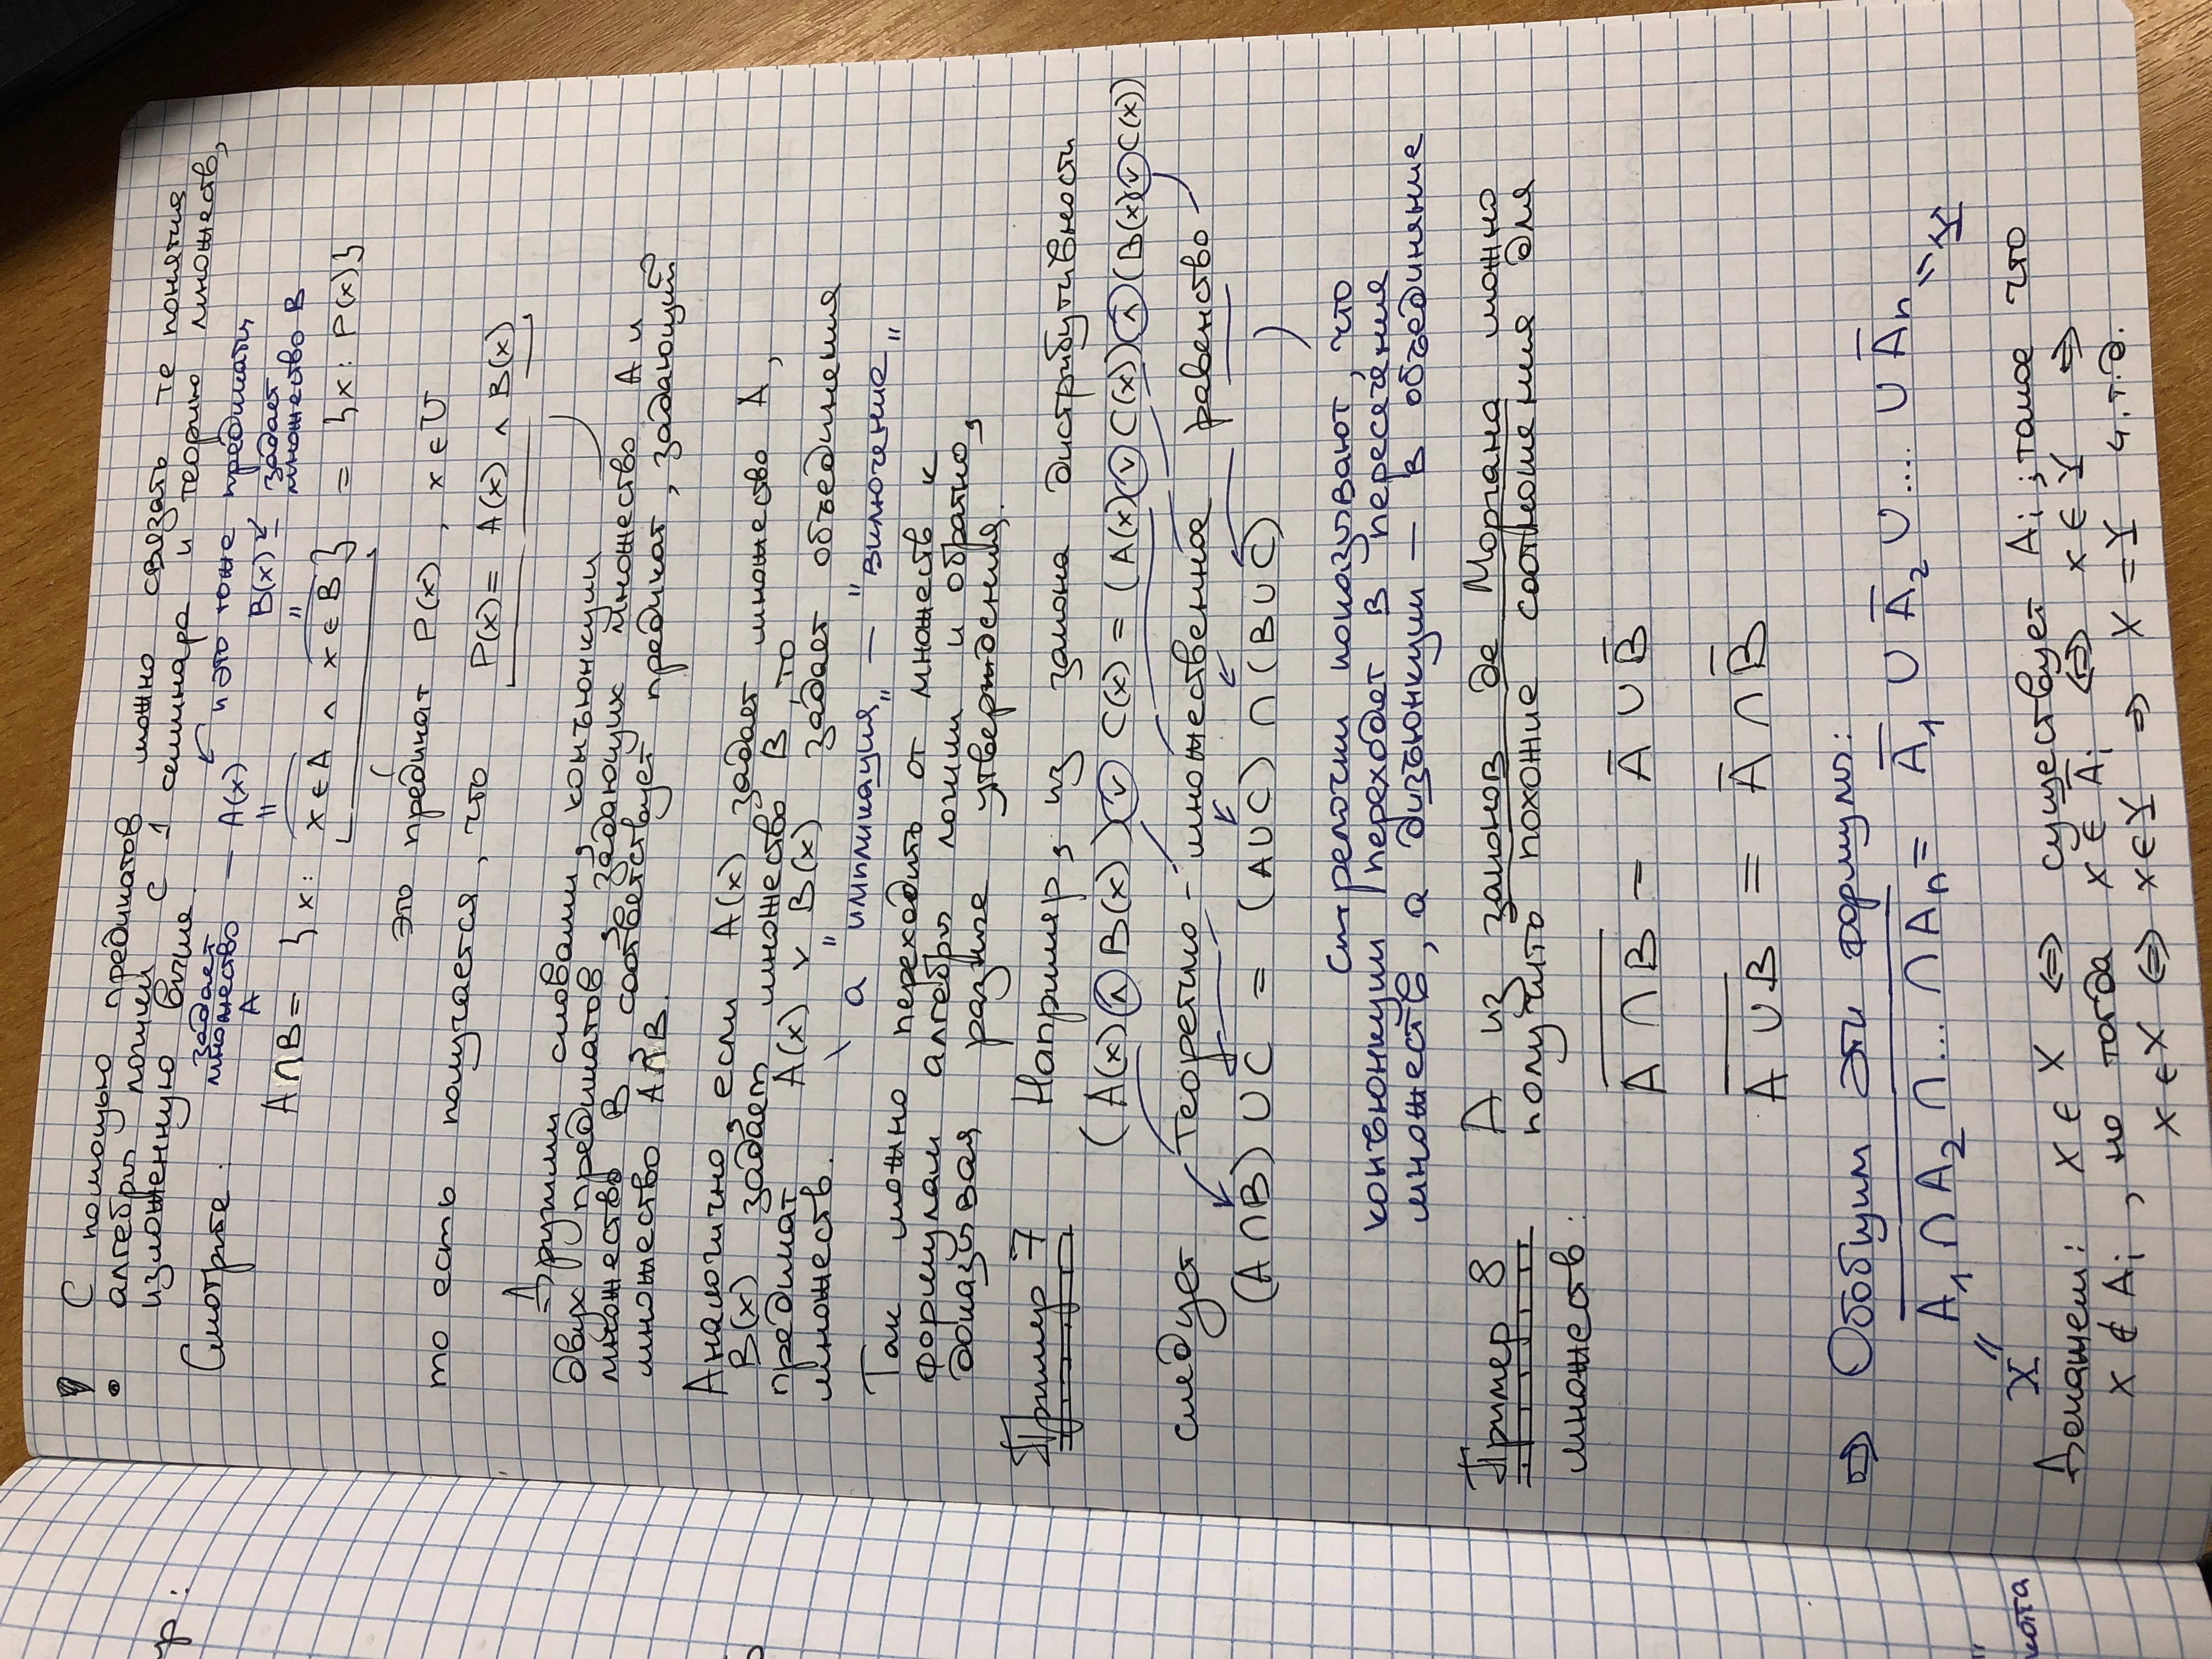 ур:
! С помощью предикатов можно связать те понятия
алгебры логики с 1 семинара и теорию множеств,
изложенную выше.
Смотрите: задает множество A — A(x) и это тоже предикаты
B(x) — задает множество B
A∩B = {x: x∈A ∧ x∈B} = {x: P(x)}
это предикат P(x), x∈U
то есть получается, что P(x) = A(x) ∧ B(x)
Другими словами, конъюнкции
двух предикатов, задающих множество A и
множество B, соответствует предикат, задающий
множество A∩B.
Аналогично, если A(x) задает множество A,
B(x) задает множество B, то
предикат A(x) ∨ B(x) задает объединения
множеств.
а "импликация" — "включение"
Так можно переходить от множеств к
формулам алгебры логики и обратно,
доказывая разные утверждения.
Пример 7 Например, из закона дистрибутивности
(A(x) ∧ B(x)) ∨ C(x) = (A(x) ∨ C(x)) ∧ (B(x) ∨ C(x))
следует теоретико-множественное равенство
(A∩B) ∪ C = (A∪C) ∩ (B∪C)
стрелочки показывают, что
конъюнкции переходят в пересечения
множеств, а дизъюнкции — в объединяние
Пример 8 А из законов де Моргана можно
получить похожие соотношения для
множеств:
A̅ ̅∩̅ ̅B̅ = A̅ ∪ B̅
A̅ ̅∪̅ ̅B̅ = A̅ ∩ B̅
⇒ Обобщим эти формулы:
A̅₁̅ ̅∩̅ ̅A̅₂̅ ̅∩̅ ̅.̅.̅.̅ ̅∩̅ ̅A̅ₙ̅ = A̅₁ ∪ A̅₂ ∪ .... ∪ A̅ₙ = Y
"
X
Докажем: x ∈ X ⇔ существует Aᵢ; такое что
x ∉ Aᵢ, но тогда x ∈ A̅ᵢ ⇔ x ∈ Y ⇒
x ∈ X ⇔ x ∈ Y ⇒ X = Y ч.т.д.
ката